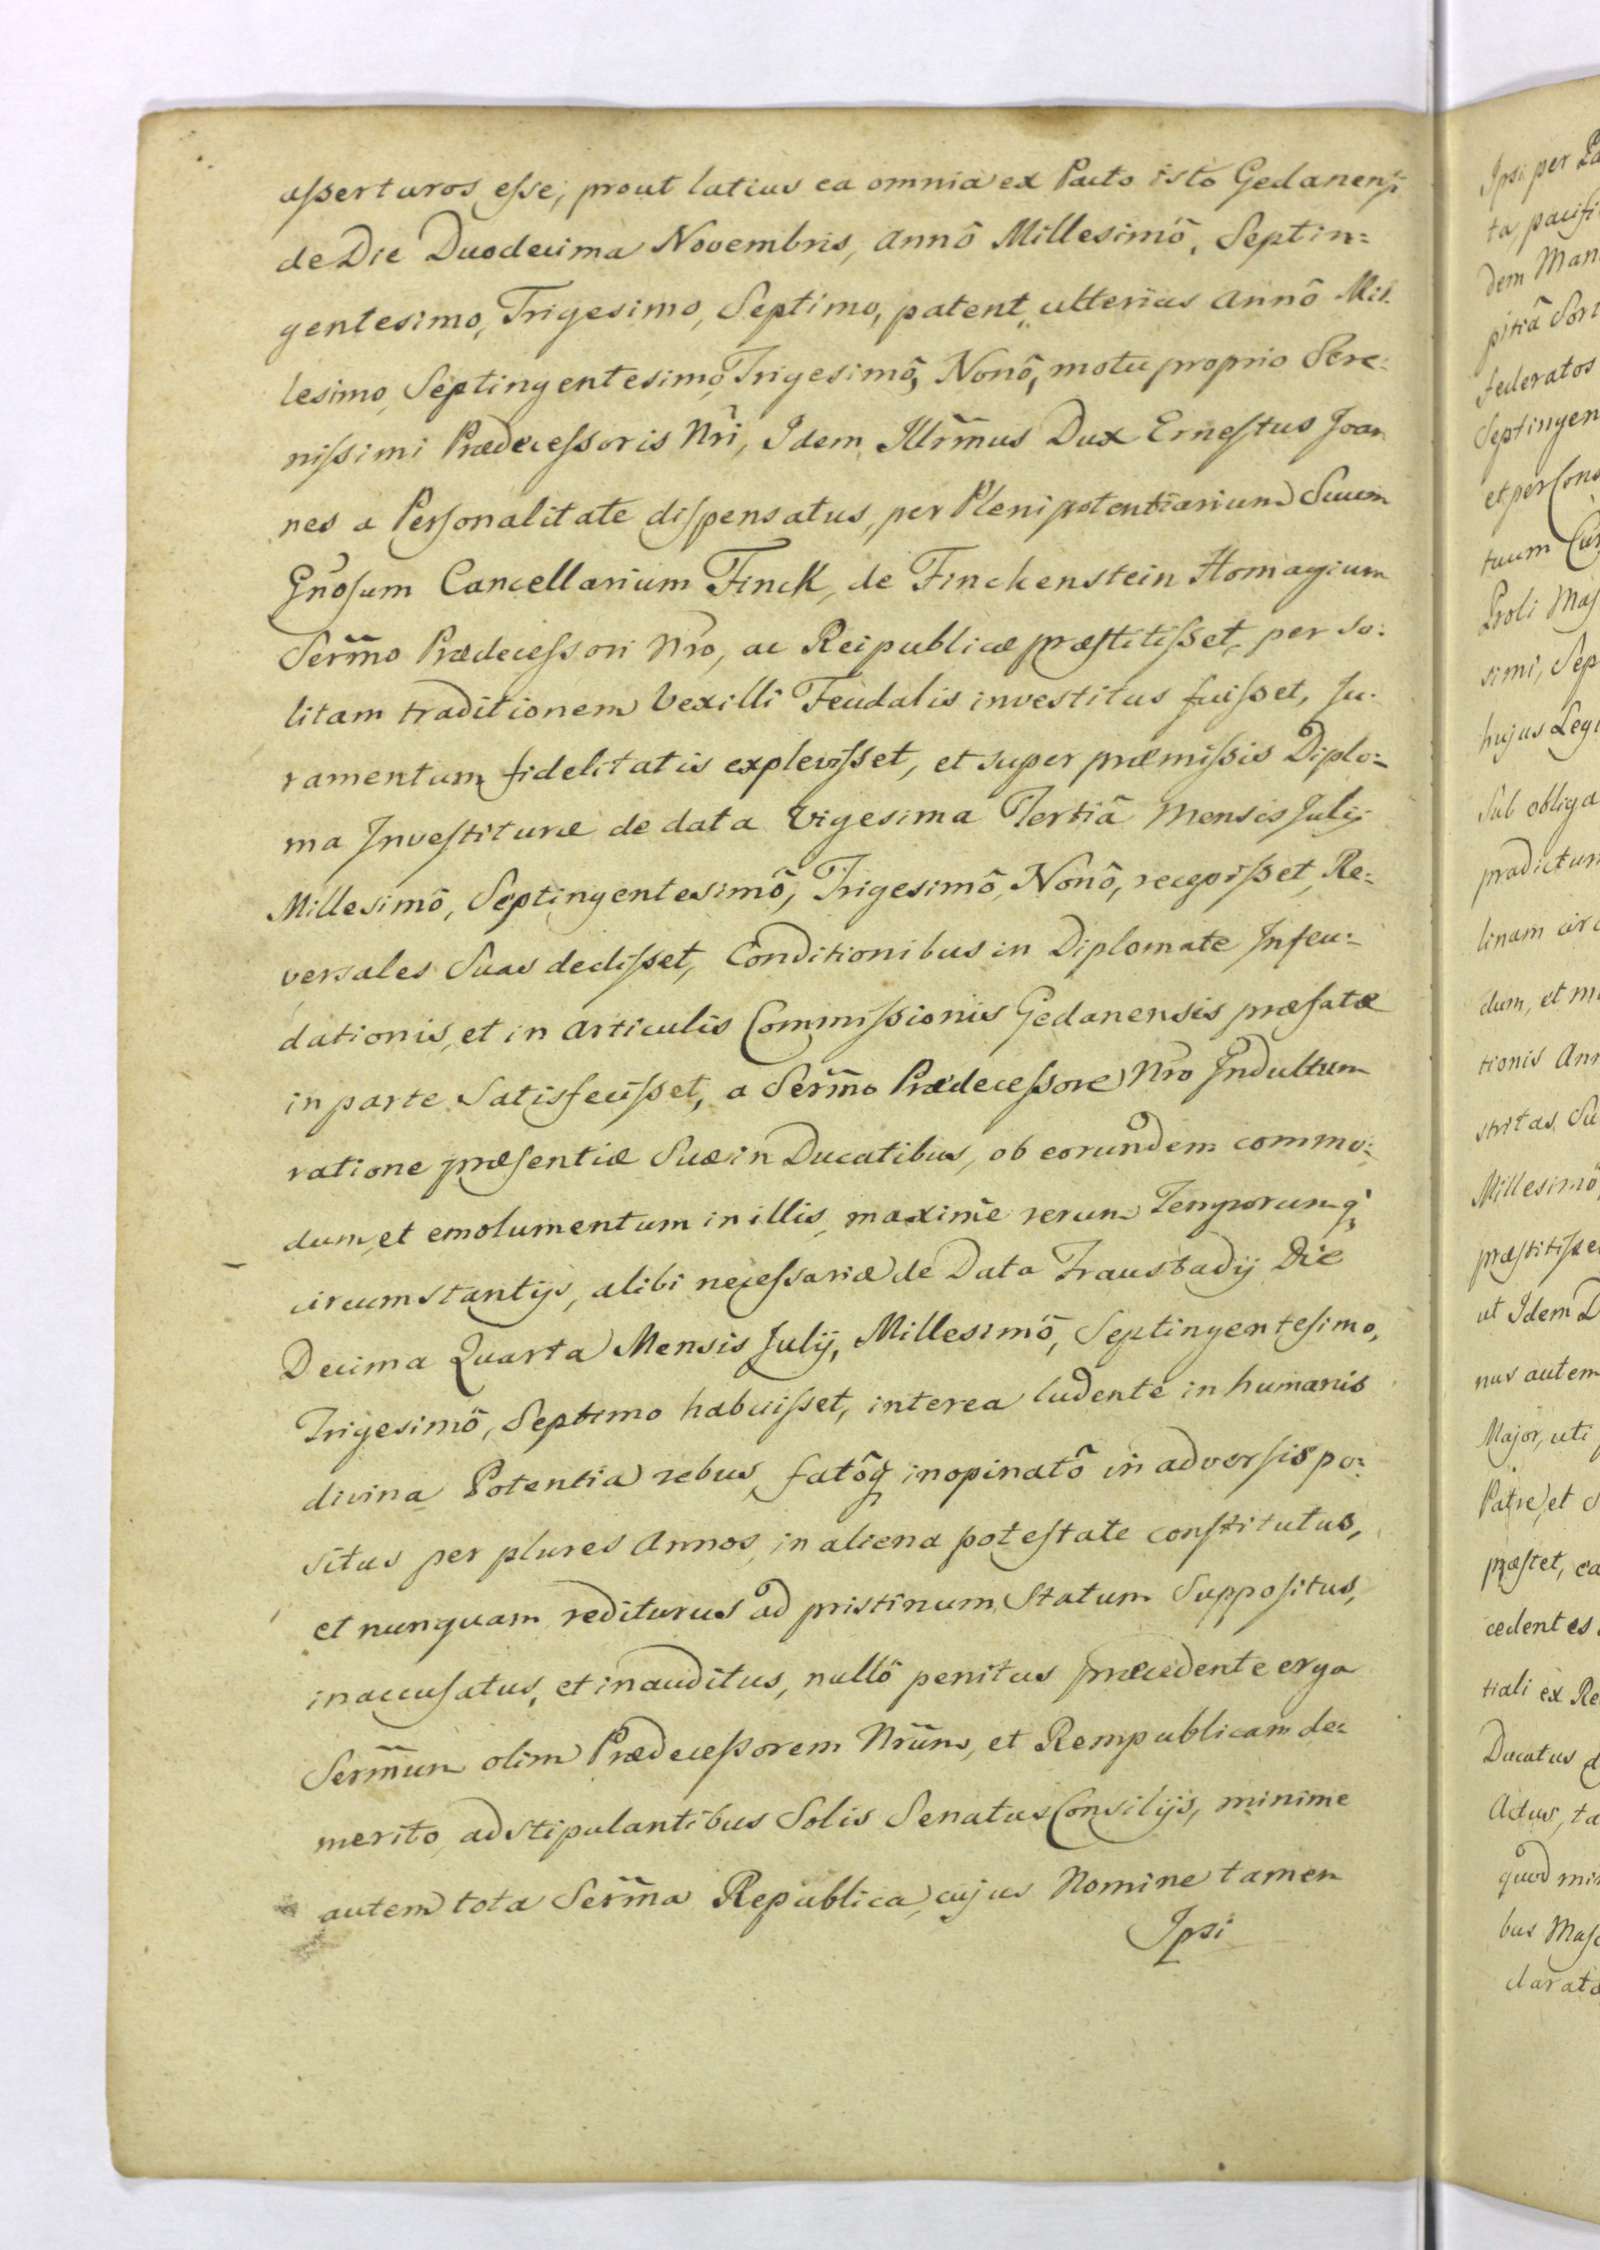 asserturos esse, prout latius ea omnia ex Pacto isto Gedanensi
de Die Duodecima Novembris, Annô Millesimô, Septin=
gentesimo, Trigesimo, Septimo, patent, ulterius Annô Mil=
lesimo, Septingentesimo, Trigesimô, Nonô, motu proprio Sere=
nissimi Prædecessoris Nri, Idem Illrmus Dux Ernestus Joan
nes a Personalitate dispensatus, per Plenipotentiarium Suum
Gnosum Cancellarium Finck, de Finckenstein Homagium
Serm̃o Prædecessori Nro, ac Reipublicæ præstitisset, per so=
litam traditionem Vexilli Feudalis investitus fuisset, Ju=
ramentum fidelitatis explevisset, et super præmissis Diplo=
ma Investituræ de data Vigesima Tertiâ Mensis Julij
Millesimô, Septingentesimô, Trigesimô, Nonô, recepisset, Re=
versales Suas dedisset, Conditionibus in Diplomate Infeu=
dationis, et in Articulis Commissionis Gedanensis præfatæ
in parte Satisfecisset, a Serm̃o Prædecessore Nro Indultum
ratione præsentiæ Suæ in Ducatibus, ob eorundem commo=
dum, et emolumentum in illis, maxime rerum Temporumq̀
circumstantijs, alibi necessariæ de Data Fraustadij Die
Decima Quarta Mensis Julij, Millesimô, Septingentesimo,
Trigesimô, Septimo habuisset, interea ludente in humanis
divina Potentia rebus, fatôq inopinatô in adversis po=
situs per plures Annos, in aliena potestate constitutus,
et nunquam rediturus ad pristinum Statum Suppositus,
inaccusatus, et inauditus, nullô penitus præcedente erga
Serm̃um olim Prædecessorem Nrum, et Rempublicam de=
merito, adstipulantibus Solis Senatus Consilijs, minime
autem tota Serm̃a Republica, cujus Nomine tamen
Ipsi
Ipsi per
ta pacifi
dem Man
pitiâ Sort
federatos
Septingen
et per Cons
tuum
Proli Mas
simi, Sep
hujus Legi
Sub obliga
prædictum
linam circ
dum, et m
tionis Ann
stritas Su
Millesimô
præstitisse
ut Idem D
nus autem
Major, uti
Patre, et S
præstet, ea
cedentes
tiali ex Re
Ducatus d
Actus, ta
quod min
bus Masc
clarata